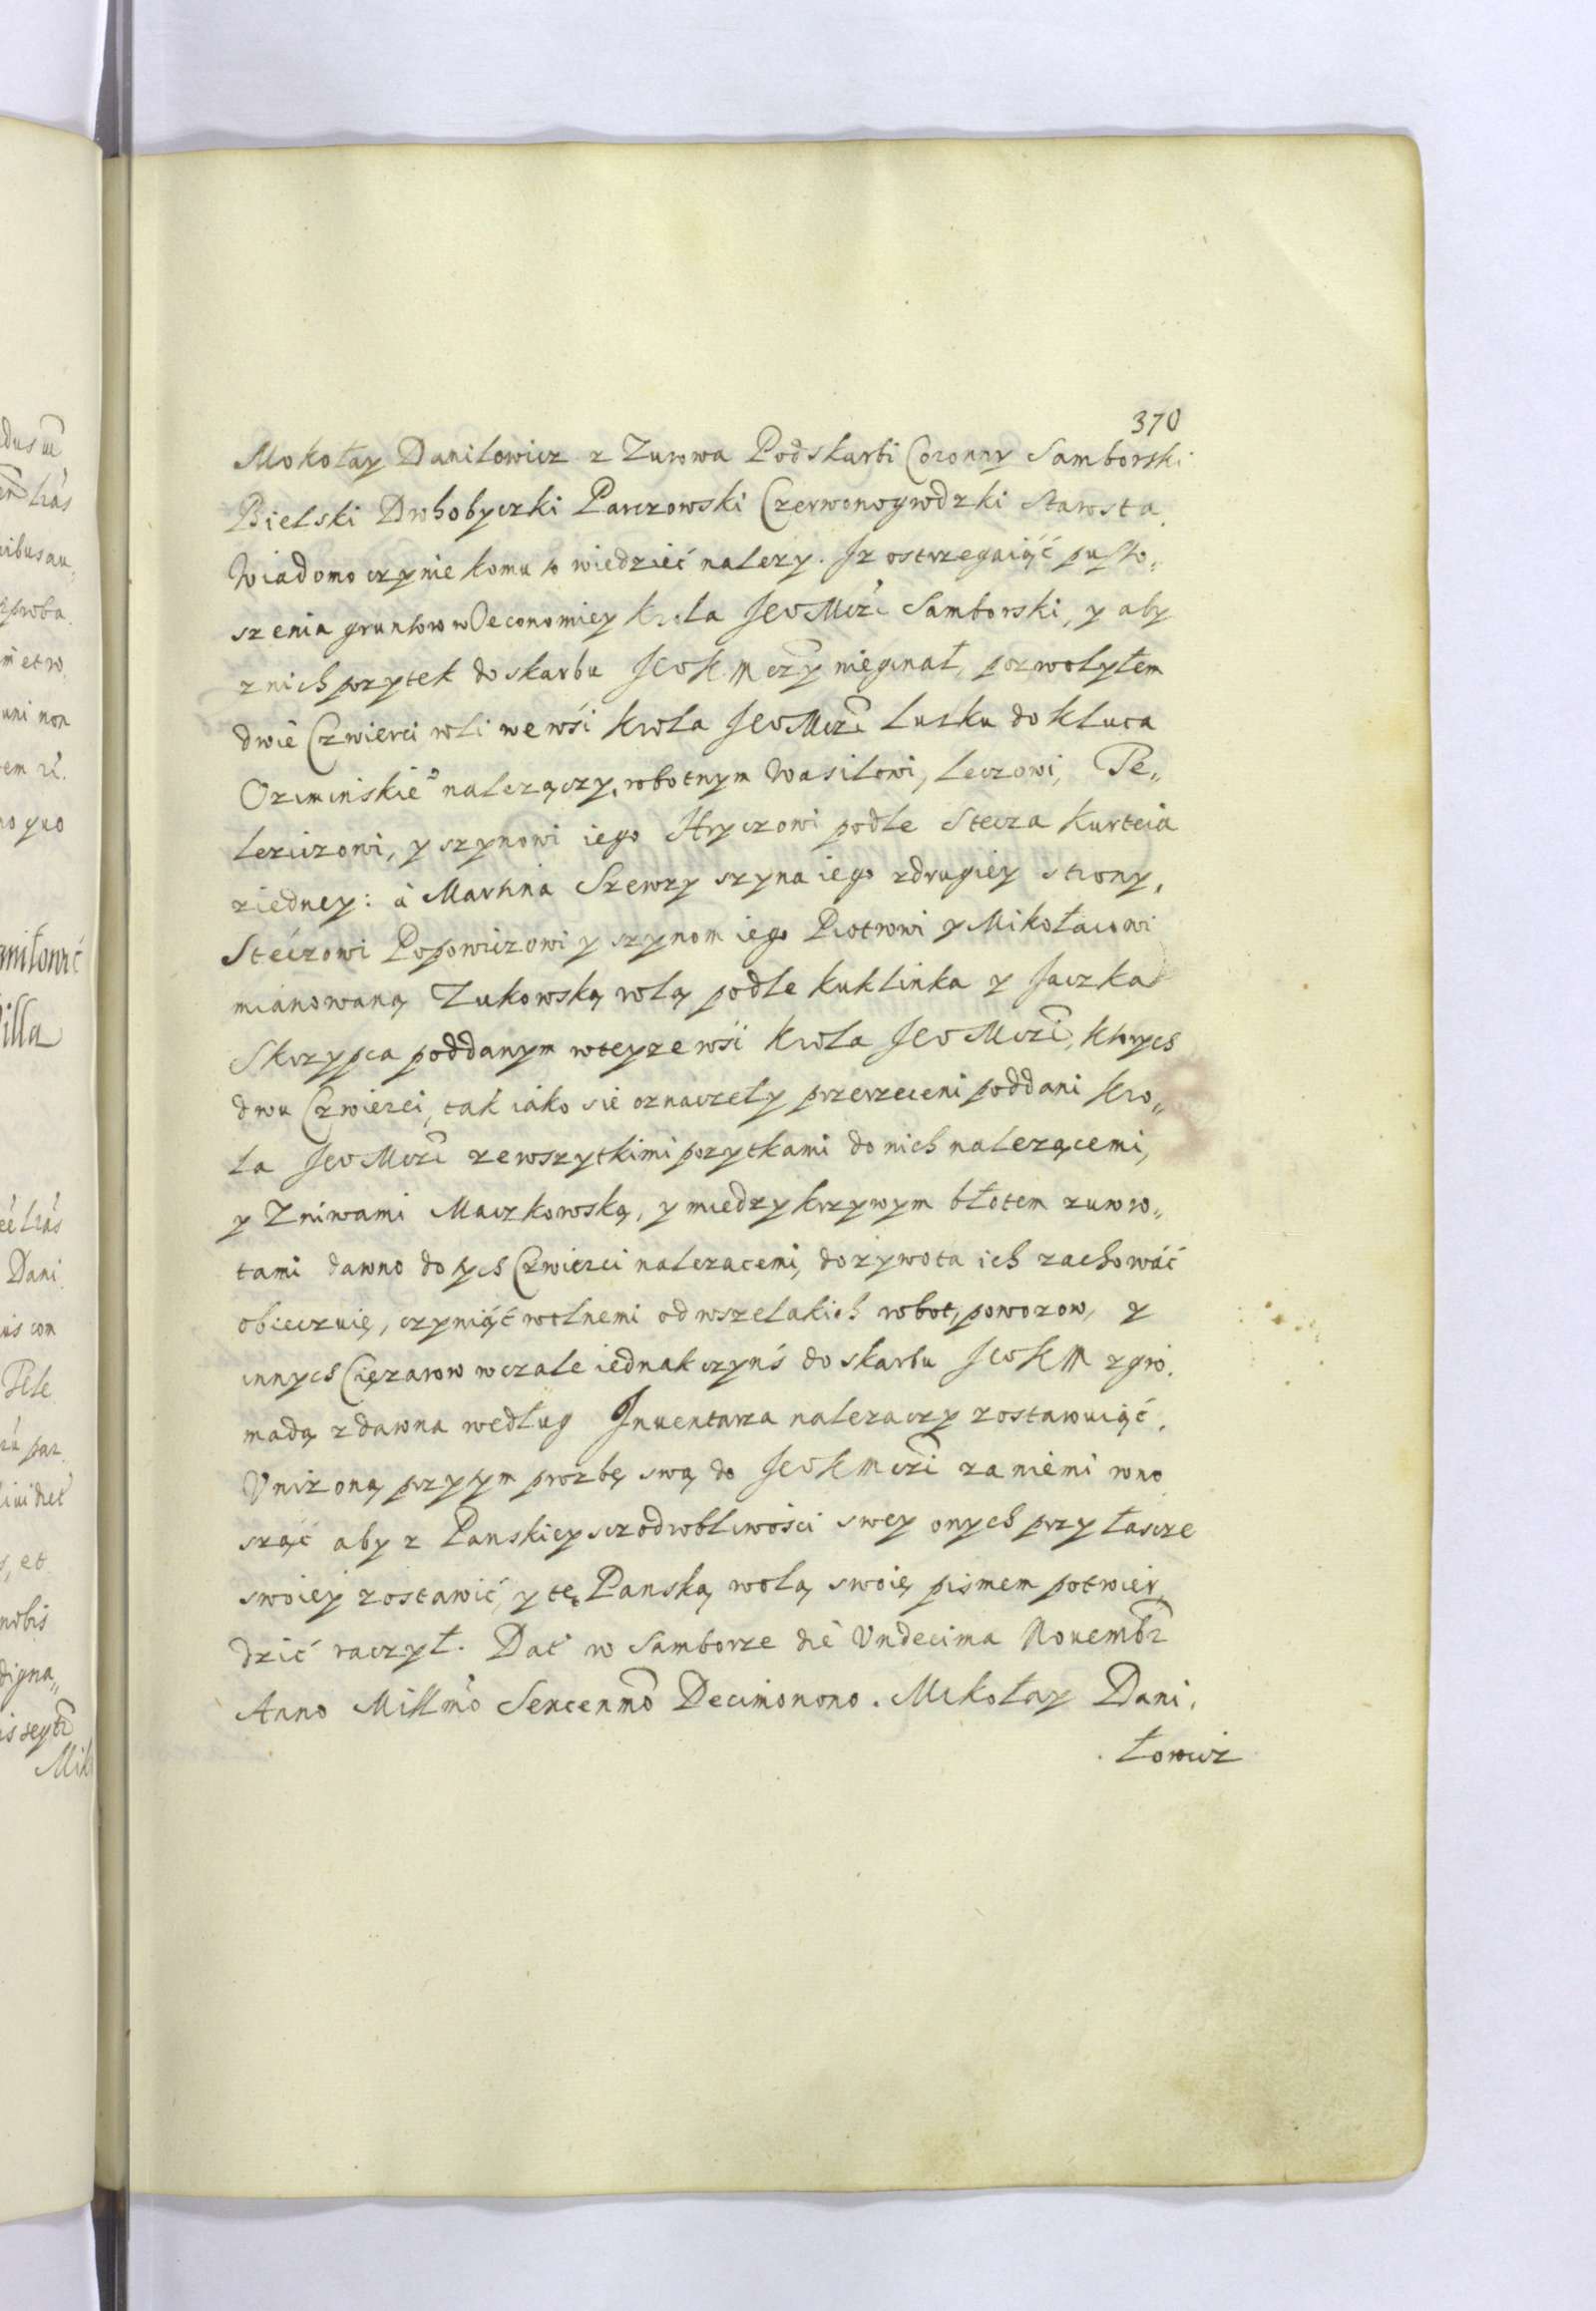 370
Mokołay Daniłowicz z Zurowa Podskarbi Coronny Samborski
Bielski Drohobyczki Parczowski Czerwonogrodzki Starosta.
Wiadomo czynie komu to wiedzieć nalezy. Jz ostrzegaiąć pusto„
szenia gruntow w Oeconomiey Krola Jeo Mczi Samborski, y aby
z nich pozytek do skarbu Jeo K Mczy nieginał, pozwolyłem
dwie Czwierci roli we wśi Krola Jeo Mczi Lusku do Kluca
Oziminskie° nalezączy, robotnym Wasilowi, Leczowi, Pe„
lezizowi, y szynowi iego Hryczowi podle Stecza Kurteia
ziedney: á Martina Szewzy szyna iego zdrugiey strony,
Stéczowi Popowiczowi y szynom iego Piotrowi y Mikołaiowi
mianowaną Zukowską rolą podle Kuklinka y Jaczka
Skrzypca poddanym wteyze wśi Krola Jeo Mczi, ktorych
dwu Czwierci, tak iako sie oznaczeły przerzeceni poddani Kro„
la Jeo Mczi zewszytkimi pozytkami do nich nalezącemi,
y Zniwami Maczkowską, y miedzy krzywym błotem zuwro„
tami dawno do tych Czwierci nalezacemi, dozywota ich zachowáć
obiecuię, czyniąć wolnemi od wszelakich robot, powozow, y
innych Ciężarow wczale iednak czynś do skarbu Jeo K M zgro.
madą zdawna według Inuentarza nalezaczy zostawuiąć.
Vniżoną przytym prozbę swą do Jeo K Mczi zaniémi wno
sząć aby z Panskiey sczodrobliwości swey onych przy łascze
swoiey zostawić, y tę Panską wolą swoię pismem potwier„
dzić raczył. Dat w Samborze die Vndecima Nouembr
Anno Millmo Sexcenmo Decimonono. Mikołay Dani.
łowicz